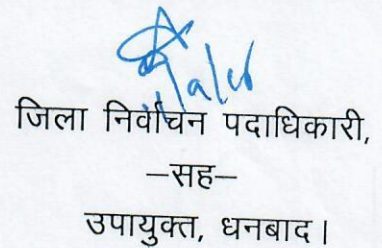 जिला निर्वाचन पदाधिकारी,
–सह–
उपायुक्त, धनबाद।